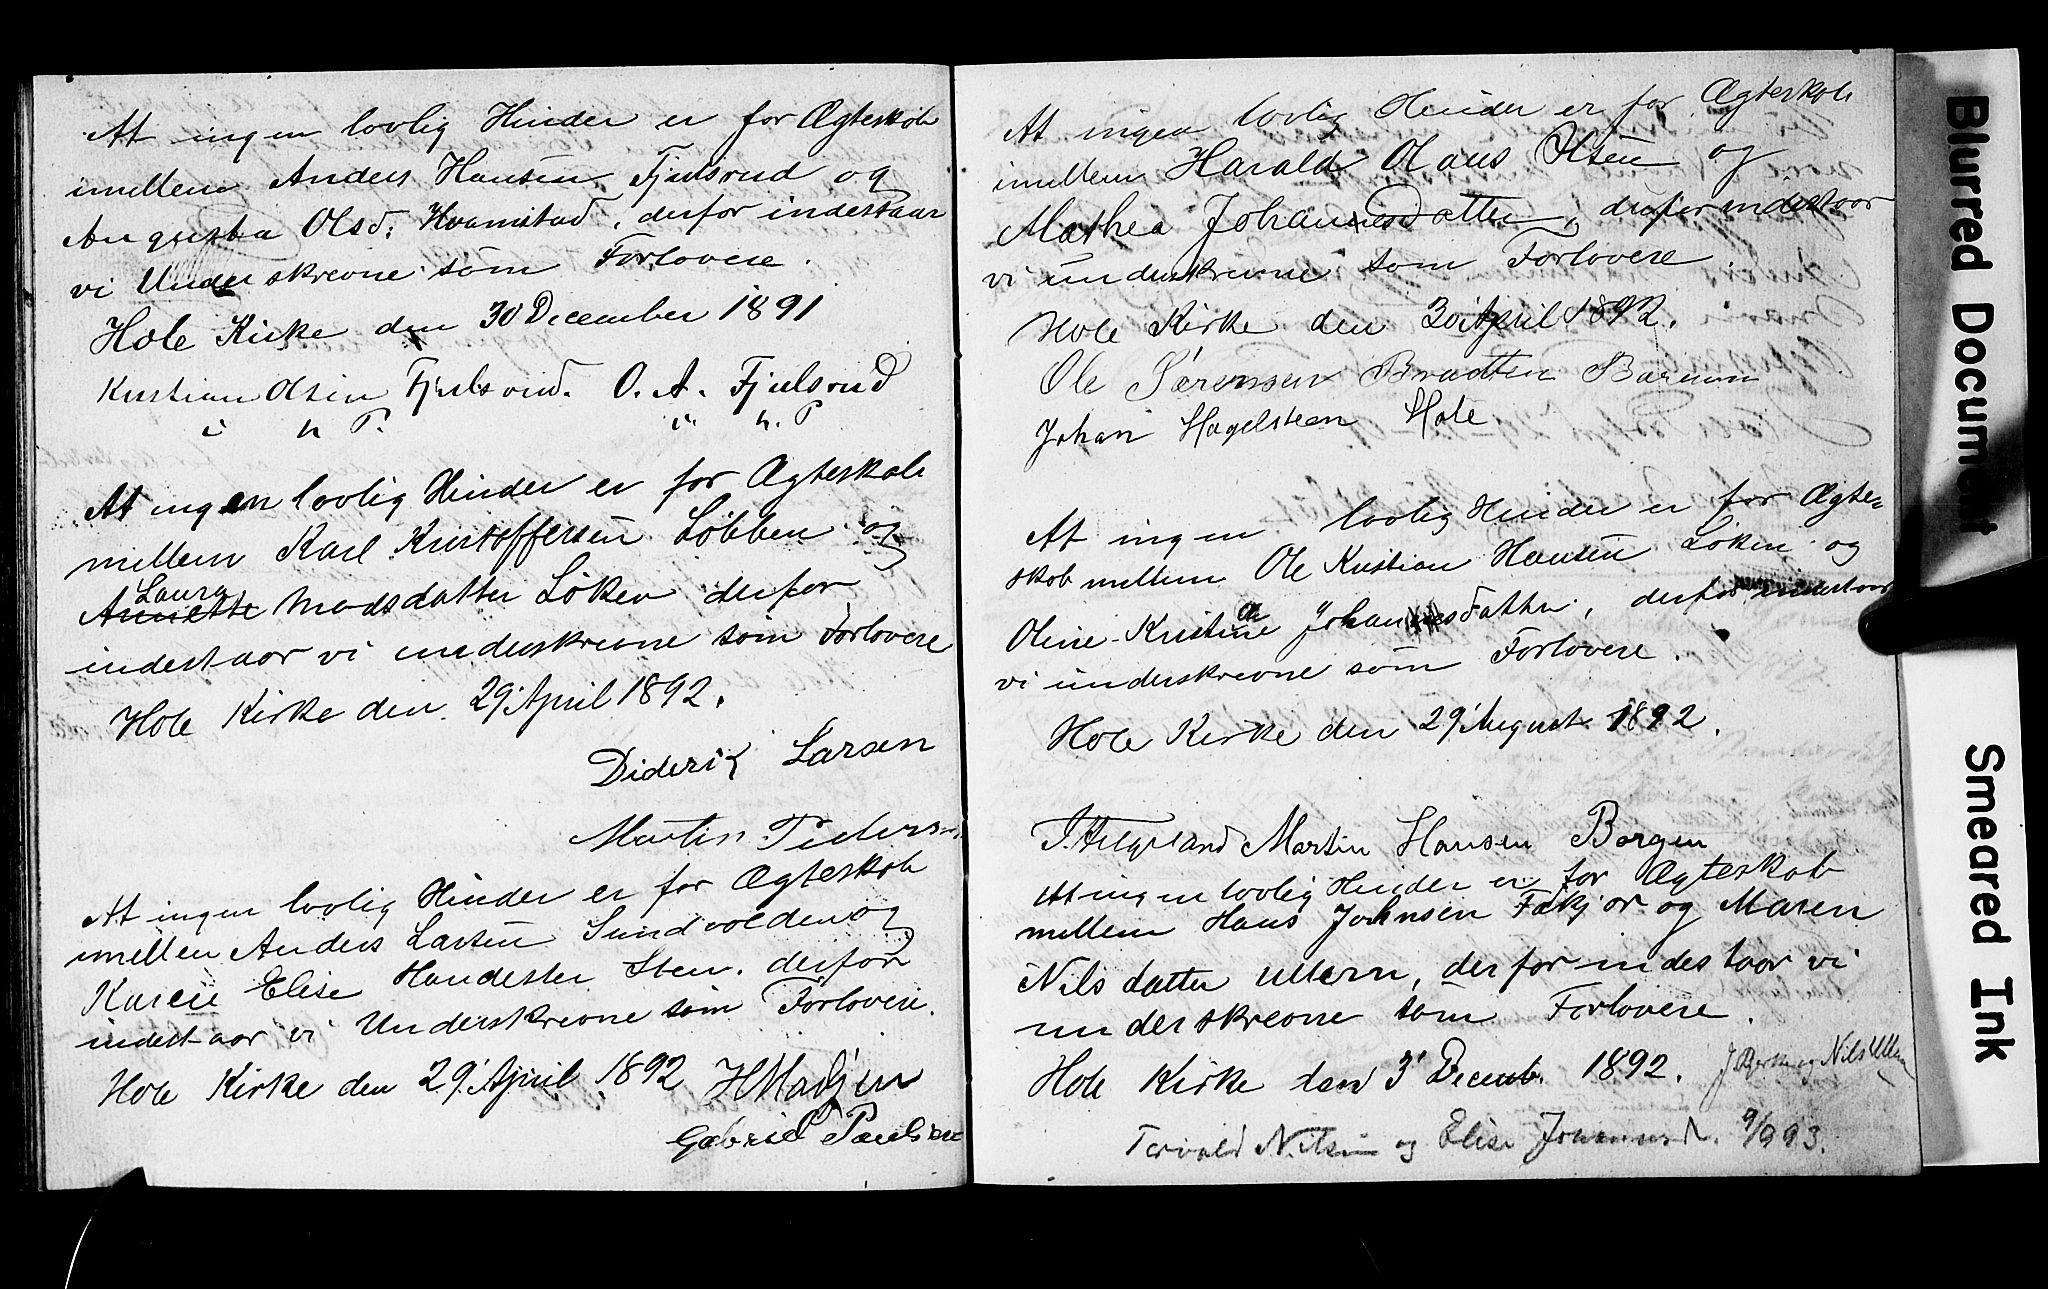 At ingen lovlig Hinder er for Ægteskab
imellem Anders Hansen Fjulsrud og
Augusta Olsd. Hvamstad, derfor indestaar
vi Underskrevne som Forlovere.
Hole Kirke den 30 December 1891
Kristian Olsen Fjulsrud. O. A. Fjulsrud
i h P. i. h. P
At ingen lovlig Hinder er for Ægteskab
mellem Karl Kristoffersen Löbben og
Laura
Annette Madsdatter Löken derfor
indestaar vi underskrevne som Forlovere
Hole Kirke den 29' April 1892.
Diderik Larsen
Martin Pedersen
At ingen lovlig Hinder er for Ægteskab
imellem Anders Larsen Sundvolden og
Karen Elise Hansdatter Sten. derfor
indestaar vi Underskrevne som Forlovere.
Hole Kirke den 29' April 1892 H Madsen
Gabriel Paulsen
At ingen lovlig Hinder er for Ægteskab
imellem Harald Olaus Olsen og
Mathea Johannesdatter, derfor indestaar
vi underskrevne som Forlovere.
Hole Kirke den 30 April 1892.
Ole Sørensen Braatten Bærum
Johan Hagelsteen Hole
At ingen lovlig Hinder er for Ægte=
skab mellem Ole Kristian Hansen Löken og
Oline Kristine Johannesdatter, derfor indestaar
vi underskrevne som Forlovere.
Hole Kirke den 29' August 1892.
T. Helgeland Martin Hansen Borgen
At ingen lovlig Hinder er for Ægteskab
mellem Hans Johnsen Fækjør og Maren
Nilsdatter Ullern, derfor indestaar vi
underskrevne som Forlovere.
Hole Kirke den 3' Decemb. 1892. J Berke og Nils Ullern
Torvald Nilsen og Elise Johannesd. 9/9 93.
Blurred Document
Smeared Ink